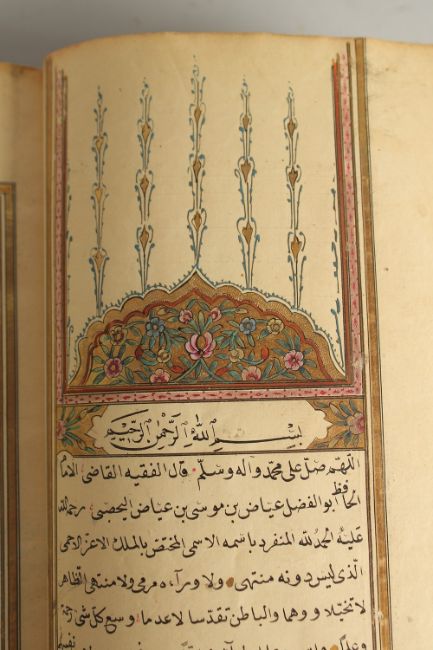 بِسْمِ اللّٰهِ الرَّحْمٰنِ الرَّحِيْمِ
اللّهمّ صلّ على محمّد وآله وسلّم قال الفقيه القاضى الامام
الحافظ ابو الفضل عياض بن موسى بن عياض اليحصبى رحمة الله
عليه الحمد لله المنفرد باسمه الاسمى المختص بالملك الاعز الاحمى
الّذى ليس دونه منتهى ولا ورآءه مرمى ولا منتهى الظاهر
لا تخيّلا ووهما والباطن تقدّسا لا عدما وسع كلّ شى رحمة
وعلما